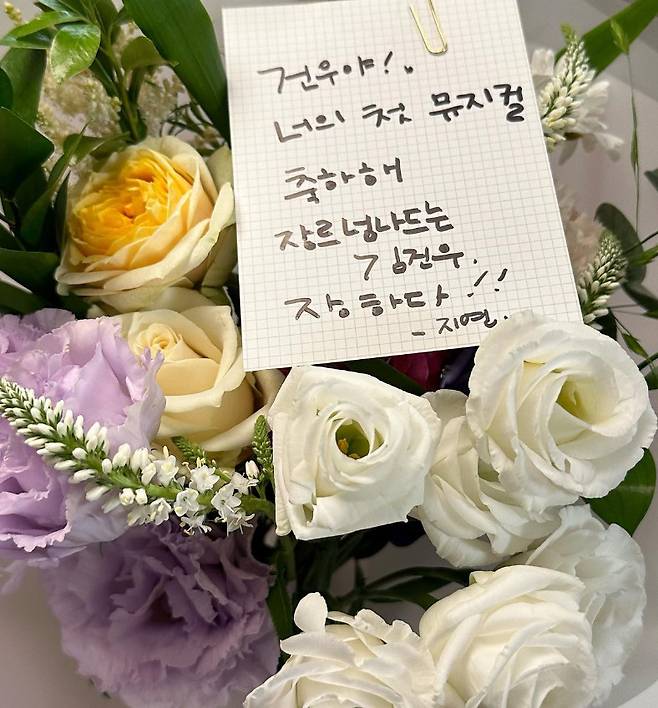 건우야!
너의 첫 뮤지컬
축하해
장르넘나드는
김건우.
장하다!!
- 지연.